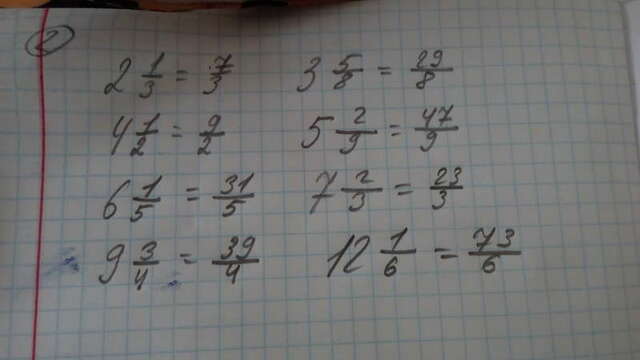 2
2 1/3 = 7/3 3 5/8 = 29/8
4 1/2 = 9/2 5 2/9 = 47/9
6 1/5 = 31/5 7 2/3 = 23/3
9 3/4 = 39/4 12 1/6 = 73/6